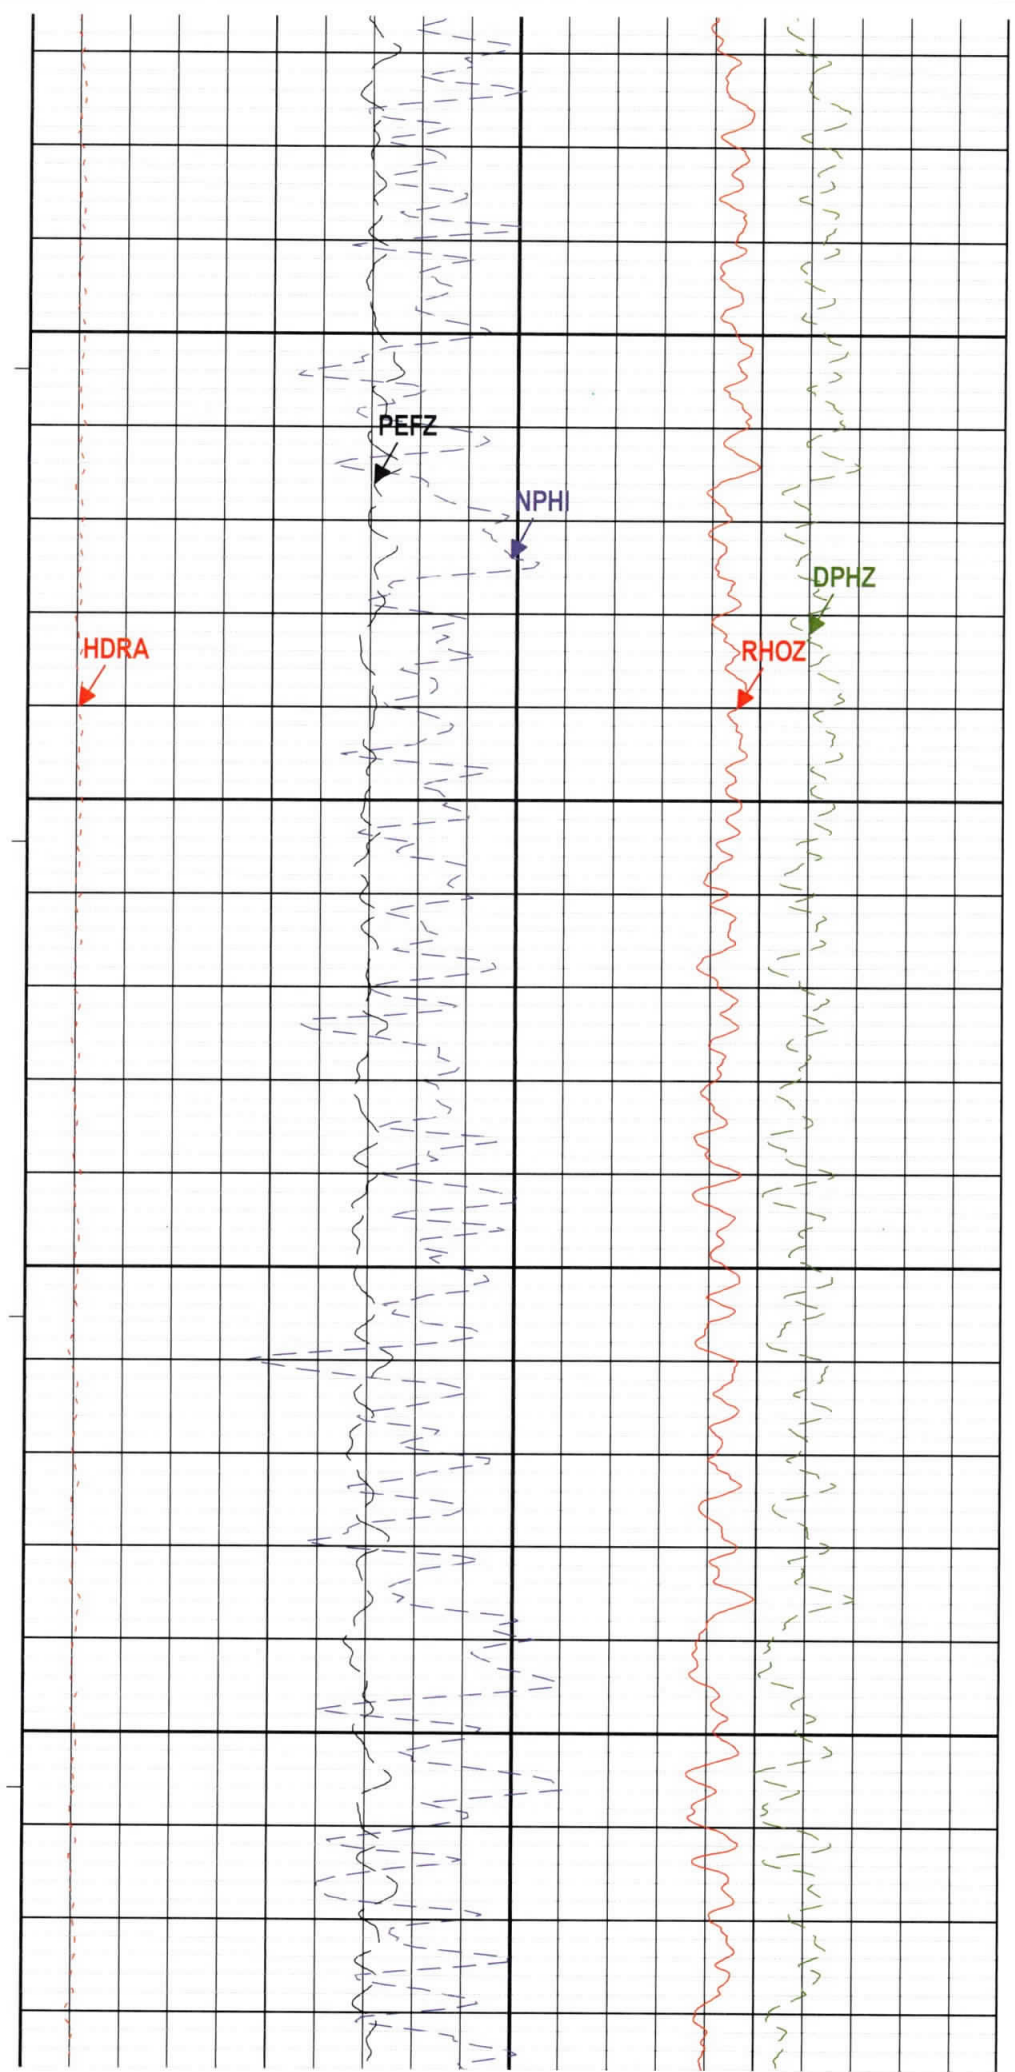 PEFZ
NPHI
DPHZ
HDRA
RHOZ